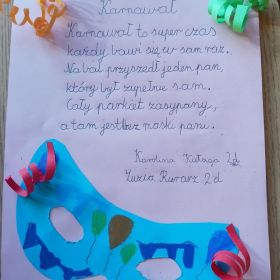 Karnawał
Karnawał to super czas
każdy bawi się w sam raz.
Na bal przyszedł jeden pan,
który był zupełnie sam.
Cały parkiet zasypany,
a tam jest bez maski pani.
Karolina 2d
Zuzia 2d